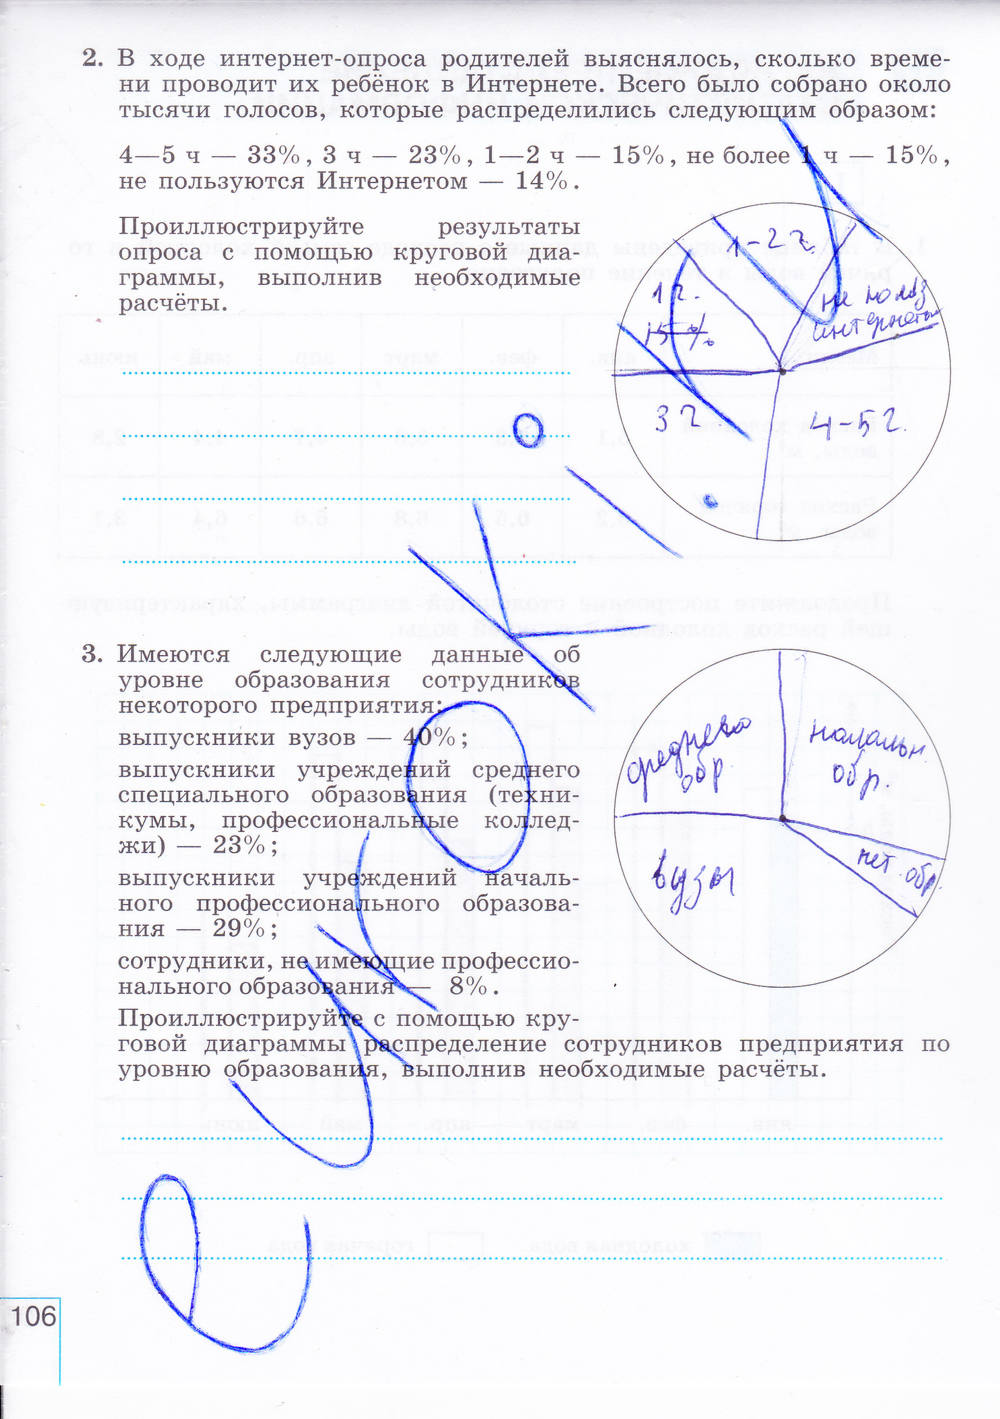 2. В ходе интернет-опроса родителей выяснялось, сколько време-
ни проводит их ребёнок в Интернете. Всего было собрано около
тысячи голосов, которые распределились следующим образом:
4—5 ч — 33%, 3 ч — 23%, 1—2 ч — 15%, не более 1 ч — 15%,
не пользуются Интернетом — 14%.
Проиллюстрируйте результаты
опроса с помощью круговой диа-
граммы, выполнив необходимые
расчёты.
1-2 ч.
1 ч.
15%
не польз
интернетом
3 ч
4-5 ч.
3. Имеются следующие данные об
уровне образования сотрудников
некоторого предприятия:
выпускники вузов — 40%;
выпускники учреждений среднего
специального образования (техни-
кумы, профессиональные коллед-
жи) — 23%;
выпускники учреждений началь-
ного профессионального образова-
ния — 29%;
сотрудники, не имеющие профессио-
нального образования — 8%.
Проиллюстрируйте с помощью кру-
говой диаграммы распределение сотрудников предприятия по
уровню образования, выполнив необходимые расчёты.
обр.
начальн.
обр.
вузы
нет обр.
106